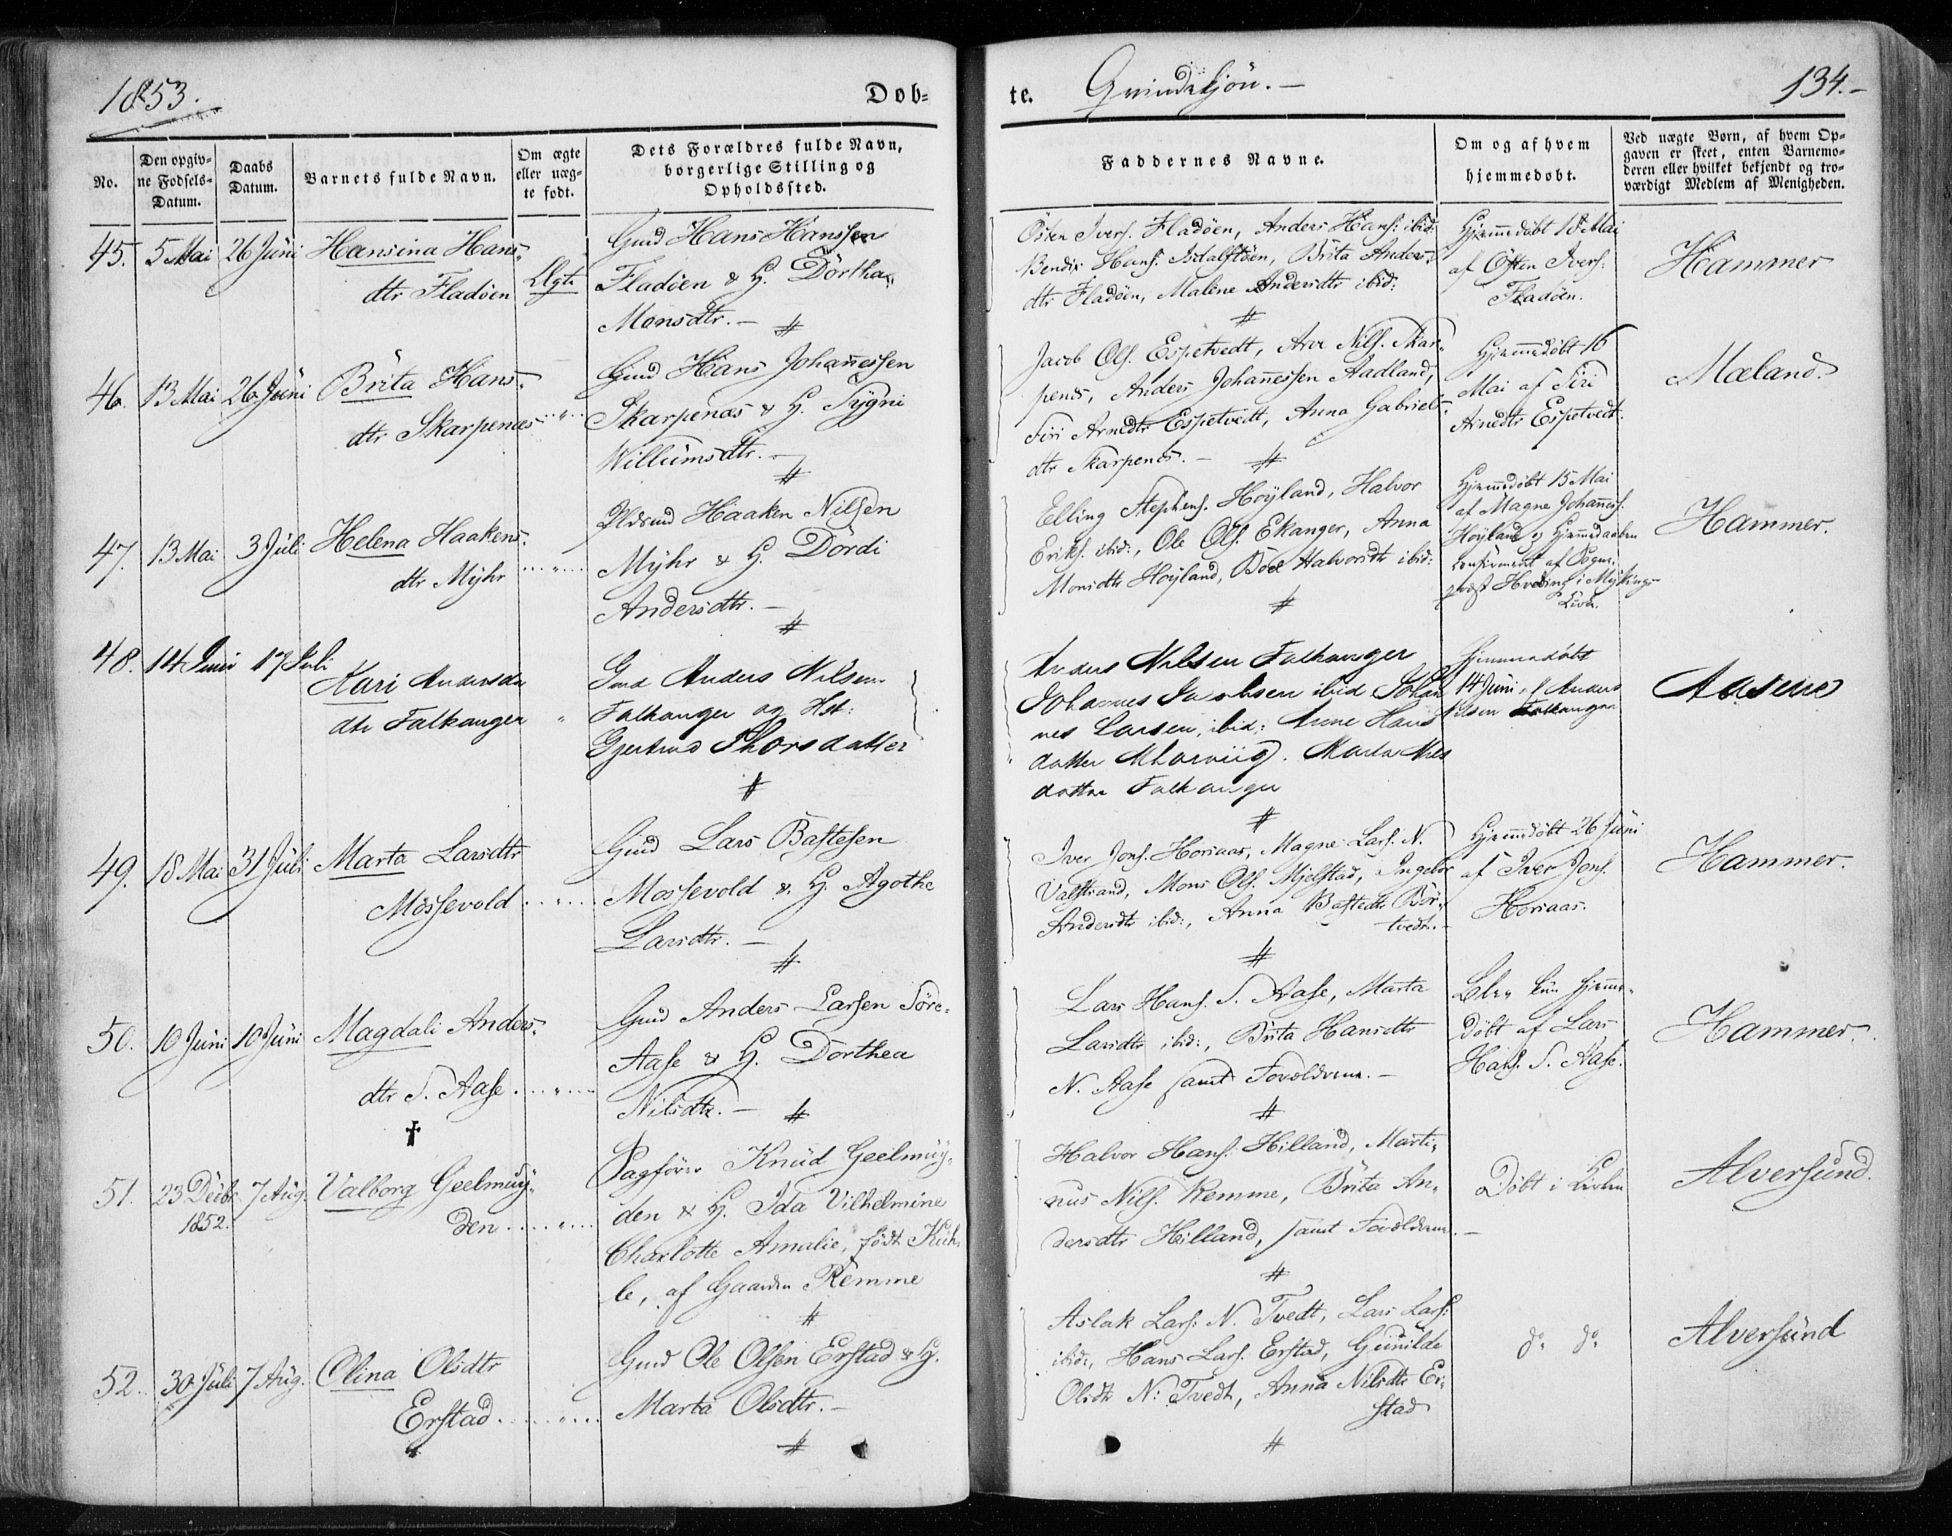 1853.
Døb-
te.
Qvindekjön. –
134. –
No.
Den opgiv-
ne Fødsels-
Datum.
Daabs
Datum.
Barnets fulde Navn.
Om ægte
eller uæg-
te født.
Dets Forældres fulde Navn,
borgerlige Stilling og
Opholdssted.
Faddernes Navne.
Om og af hvem
hjemmedøbt.
Ved uægte Børn, af hvem Op-
gaven er skeet, enten Barnemo-
deren eller hvilket bekjendt og tro-
værdigt Medlem af Menigheden.
45. 5 Mai 26 Juni Hansina Hans-
dtr Fladöen
Ægte
Gmd Hans Hanssen
Fladöen & H. Dörthe
Monsdtr. –
Östen Ivers. Fladöen, Anders Hans. ibid:
Bendix Hans. Isdalstöen, Brita Anders-
dtr Fladöen, Maline Andersdtr ibid:
Hjemmedöbt 18 Mai
af Östen Ivers.
Fladöen.
Hammer
46. 13 Mai 26 Juni Brita Hans-
dtr Skarpenæs "
Gmd Hans Johannessen
Skarpenæs & H. Sygni
Willumsdtr. –
Jacob Ols. Espetvedt, Arne Nils. Skar-
penes, Anders Johannessen Aadland,
Siri Arnedtr Espetvedt, Anna Gabriels-
dtr Skarpenes. –
Hjemmedöbt 16
Mai af Siri
Arnedtr Espetvedt.
Mæland.
47. 13 Mai 3 Juli Helena Haakens-
dtr Myhr "
Huusmd Haaken Nilsen
Myhr & H. Dördi
Andersdtr. –
Elling Stephens. Höyland, Halvor
Eriks. ibid:, Ole Ols. Ekanger, Anna
Monsdtr Höyland, Boel Halvorsdtr ibid:
Hjemmedöbt 15 Mai
af Magne Johanness.
Höyland og Hjemmedaaben
confirmeret af Sogne-
præst Hvoslef i Myking-
Kirke.
Hammer.
48. 14 Juni 17 Juli
Kari Andersda
dtr Falkanger "
Gmd Anders Nilsen
Falkanger og Hst:
Gjertrud Thorsdatter
Anders Nilsen Falkanger
Johannes Jacobsen ibid Johan
nes Larsen, ibid: Anne Hans
datter Marviig. Marta Nils
datter Falkanger
Hjemmedøbt
14 Juni af Anders
Nilsen Falkanger
Aasene
49. 18 Mai 31 Juli Marta Larsdtr
Mossevold "
Gmd Lars Bastesen
Mossevold & H. Agothe
Larsdtr. –
Iver Jons. Horsaas, Magne Lars. N.
Valstrand, Mons Ols. Mjelstad, Ingebor
Andersdtr ibid:, Anna Bastedtr Bör-
tvedt. –
Hjemmedöbt 26 Juni
af Iver Jons.
Horsaas.
Hammer.
50. 10 Juni 10 Juni Magdali Anders-
dtr S. Aase "
†
Gmd Anders Larsen Söre-
Aase & H. Dorthea
Nilsdtr. –
Lars Hans. S. Aase, Marta
Larsdtr ibid:, Brita Hansdtr
N. Aase samt Forældrene. –
Blev kun hjemme-
döbt af Lars
Hans. S. Aase.
Hammer.
51. 23 Decbr
1852. 7 Aug. Valborg Geelmuy-
den "
Sagförer Knud Geelmuy-
den & H. Ida Vilhelmine
Charlotte Amalie, födt Kuh-
le, af Gaarden Remme
Halvor Hans. Hilland, Marti-
nus Nils. Remme, Brita An-
dersdtr Hilland, samt Forældrene. –
Döbt i Kirken
Alversund.
52. 30 Juli 7 Aug. Olina Olsdtr
Erstad "
Gmd Ole Olsen Erstad & H.
Marta Olsdtr. –
Aslak Lars. N. Tvedt, Lars Lars.
ibid:, Hans Lars. Erstad, Gunilde
Olsdtr N: Tvedt, Anna Nilsdtr Er-
stad
do do
Alversund